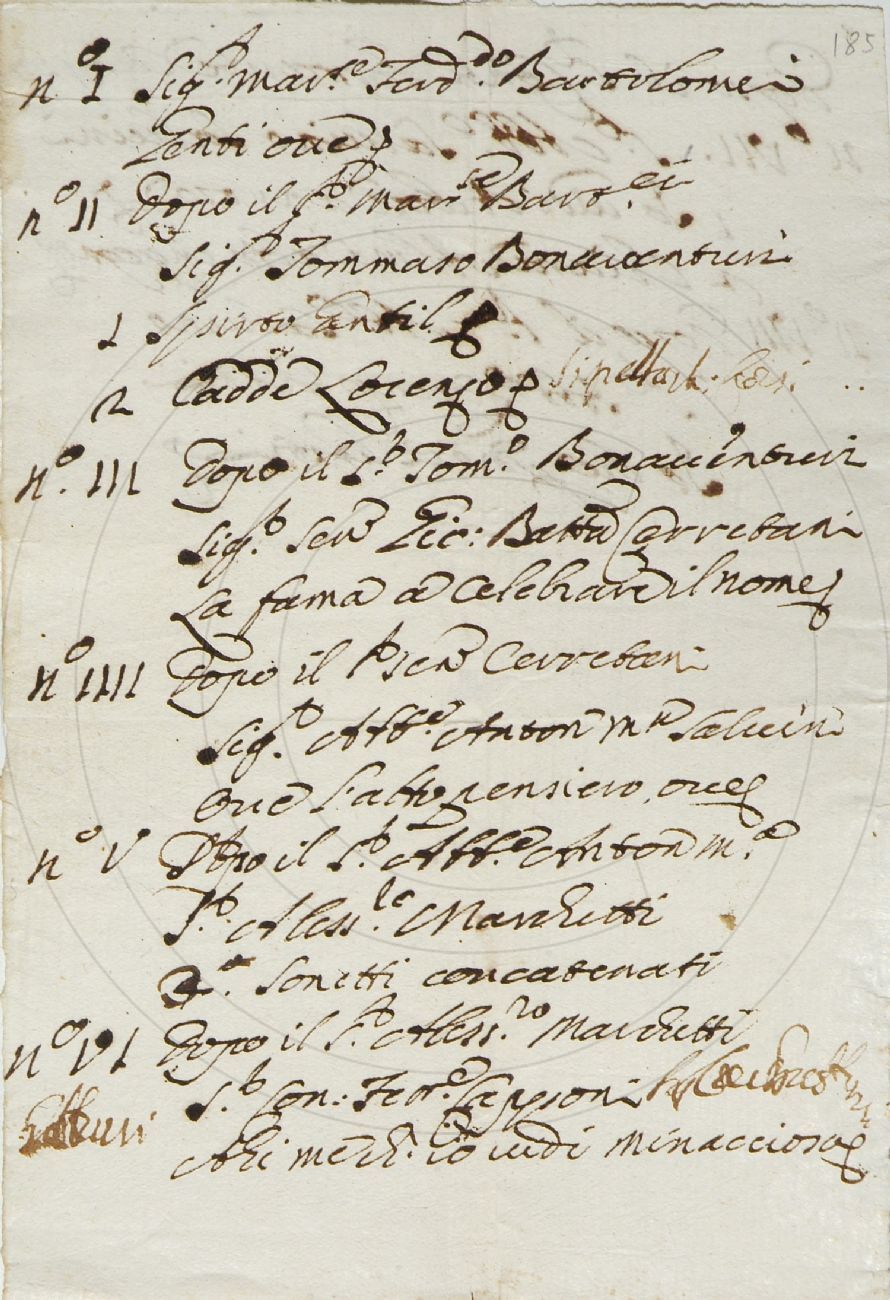 185
n.º I Sig.r Mar.se Ferd.do Bartolomei
Genti ove
n.º II Dopo il S.r Mar.se Bart.ei
Sig.r Tommaso Bonaventuri
1 Spirto Gentil
2 Cadde Lorenzo
n.º III Dopo il S.r Tom.º Bonaventuri
Sig.r Sen.e Gio: Batta Cerretani
La fama a Celebrare il nome
n.º IIII Dopo il S.r Sen.e Cerretani
Sig.r Abb.e Anton M.a Salvini
Ove l'alto pensiero, ove
n.º V Dopo il S.r Abb.e Anton M.a
S.r Aless.ro Marchetti
Sonetti concatenati
n.º VI Dopo il S.r Aless.ro Marchetti
S.r Con: Capponi
Ahi merchè io vidi minaccioso